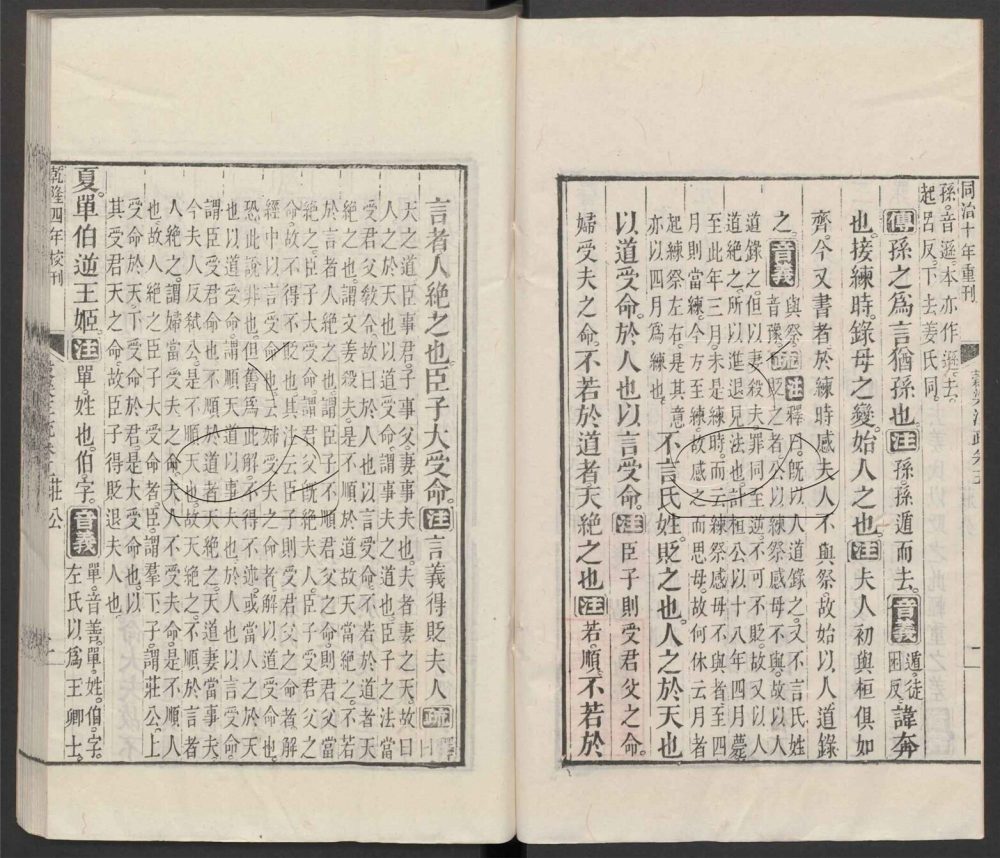 同治十年重刊
孫。音遜。本亦作遜。去。
起呂反。下去姜氏同。
傳孫之爲言猶孫也。注孫。孫遁而去。音義遁。徒困反諱奔
也。接練時。錄母之變。始人之也。注夫人初與桓俱如
齊。今又書者。於練時感夫人不與祭。故始以人道錄
之。音義與祭音豫疏注釋曰。旣以人道錄之。又不言氏姓
貶之者。公以練祭感母不與。故以人
道錄之。但以妻殺夫。罪同至逆。不可不貶。故又以人
道絕之。所以進退見法也。計桓公以十八年四月薨。
至此年三月未是練時。而云練祭感母不與者。至四
月則當練。今方至練。故感之而思母。故何休云。月者
起練祭左右。是其意不言氏姓。貶之也。人之於天也
亦以四月爲練也。
以道受命。於人也以言受命。注臣子則受君父之命。
婦受夫之命。不若於道者。天絕之也。注若。順。不若於
言者。人絕之也。臣子大受命。注言義得貶夫人疏釋曰
天之道。臣事君。子事父。妻事夫也。夫者妻之天。故曰
人之於天也。以道受命。謂事夫之道也。臣子之法。當
受君父敎令。故曰於人也以言受命。不若於道者天
絕之也。謂文姜殺夫。是不順於道。故天當絕之。不若
於言者人絕之也。謂臣子不順君父之命。則君父當
絕之。臣子大受命。謂君父旣絕夫人。臣子受君父之
命。故不得不貶也。其注云臣子則受君父之命者。解
經中以言受命也。云婦受夫之命者。解以道受命也。
恐此說非也。但舊爲此解。不得不述。或當人之於天
也以道受命。謂順天道以事夫也。於人也以言受命。
謂臣受君命。不順於道者天絕之。天道妻當事夫。
今夫人反弑公。是不順天也。故天絕之。不順於言者
人絕之。謂婦當受夫之命。夫人不受夫命。是不順人
也。故人絕之。臣子大受命者。臣謂羣下。子謂莊公。上
受命於天。下受命於君。是大受命也。以
其受君天之命。故臣子得貶退夫人也。
夏。單伯逆王姬。注單。姓也。伯。字。音義單。音善。單。姓。伯。字。
左氏以爲王卿士。
乾隆四年校刊
莊公